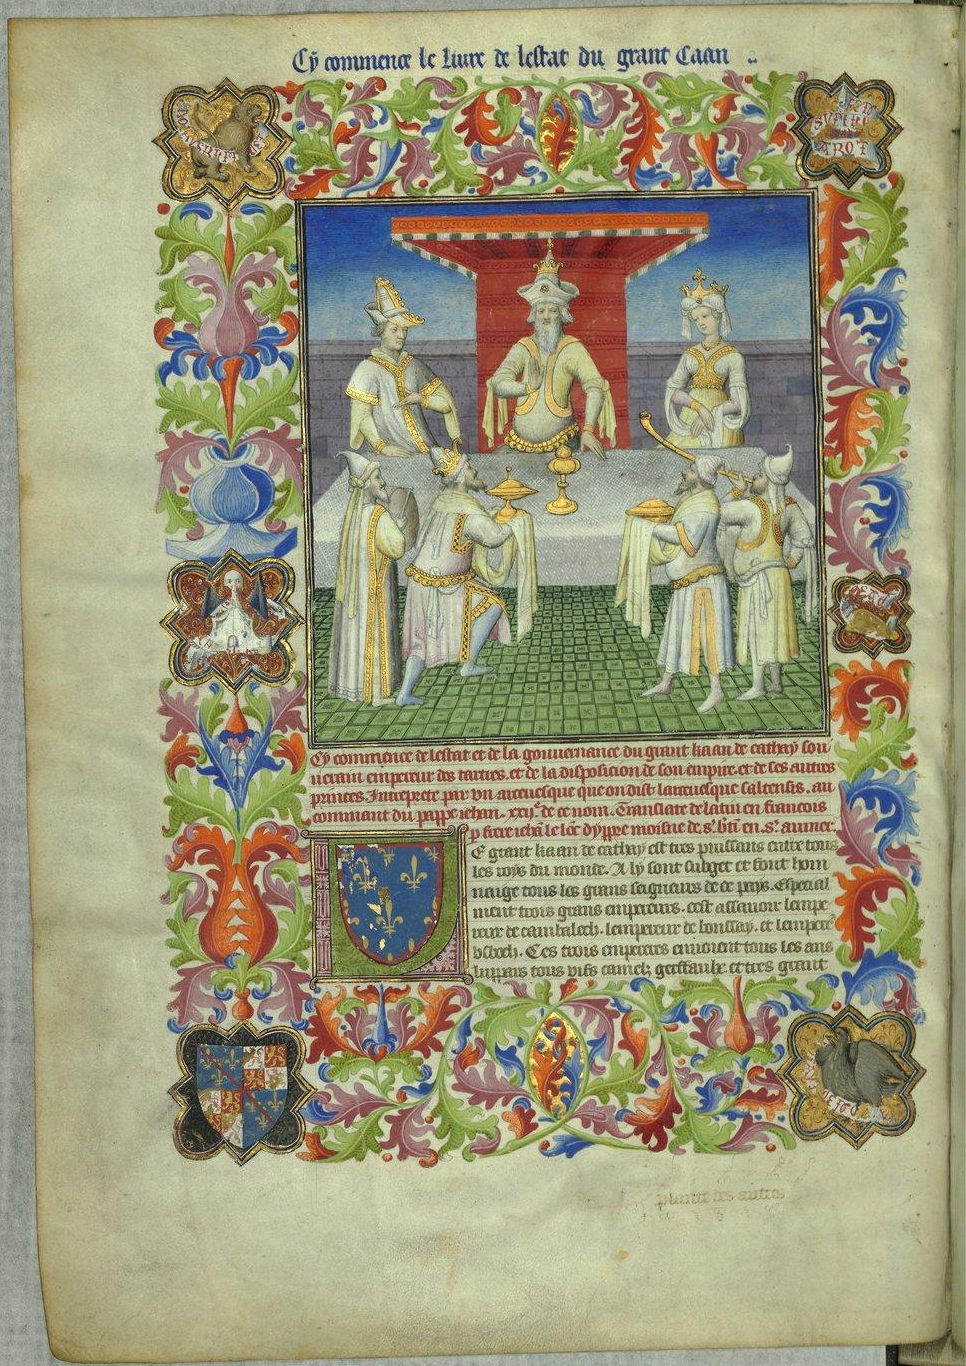 Cy commence le liure de lestat du grant Caan
Cy commence de lestat et de la gouuernance du grant kaan de cathay sou
uerain empereur des tartres. et de la disposicion de son empire. et de ses autres
princes. Interprete par vn arceuesque que on dist larceuesque saltensis. au
commant du pappe iehan. xxij.e de ce nom. Translate de latin en francois
p frere iehan le lonc dyppre moisne de s. bertin en s. aumer.
E grant kaan de cathay est tres puissans entre tous
les roys du monde. A ly sont subget et font hom
maige tous les grans seigneurs de ce pays. Especial
ment trois grans empereurs. cest assauoir lempe
reur de cambalech. lempereur de boussay. et lempere
vsbech. Ces trois empereres enuoient tous les ans
luppars tous vifs camelz gerffaulx. et tres grant